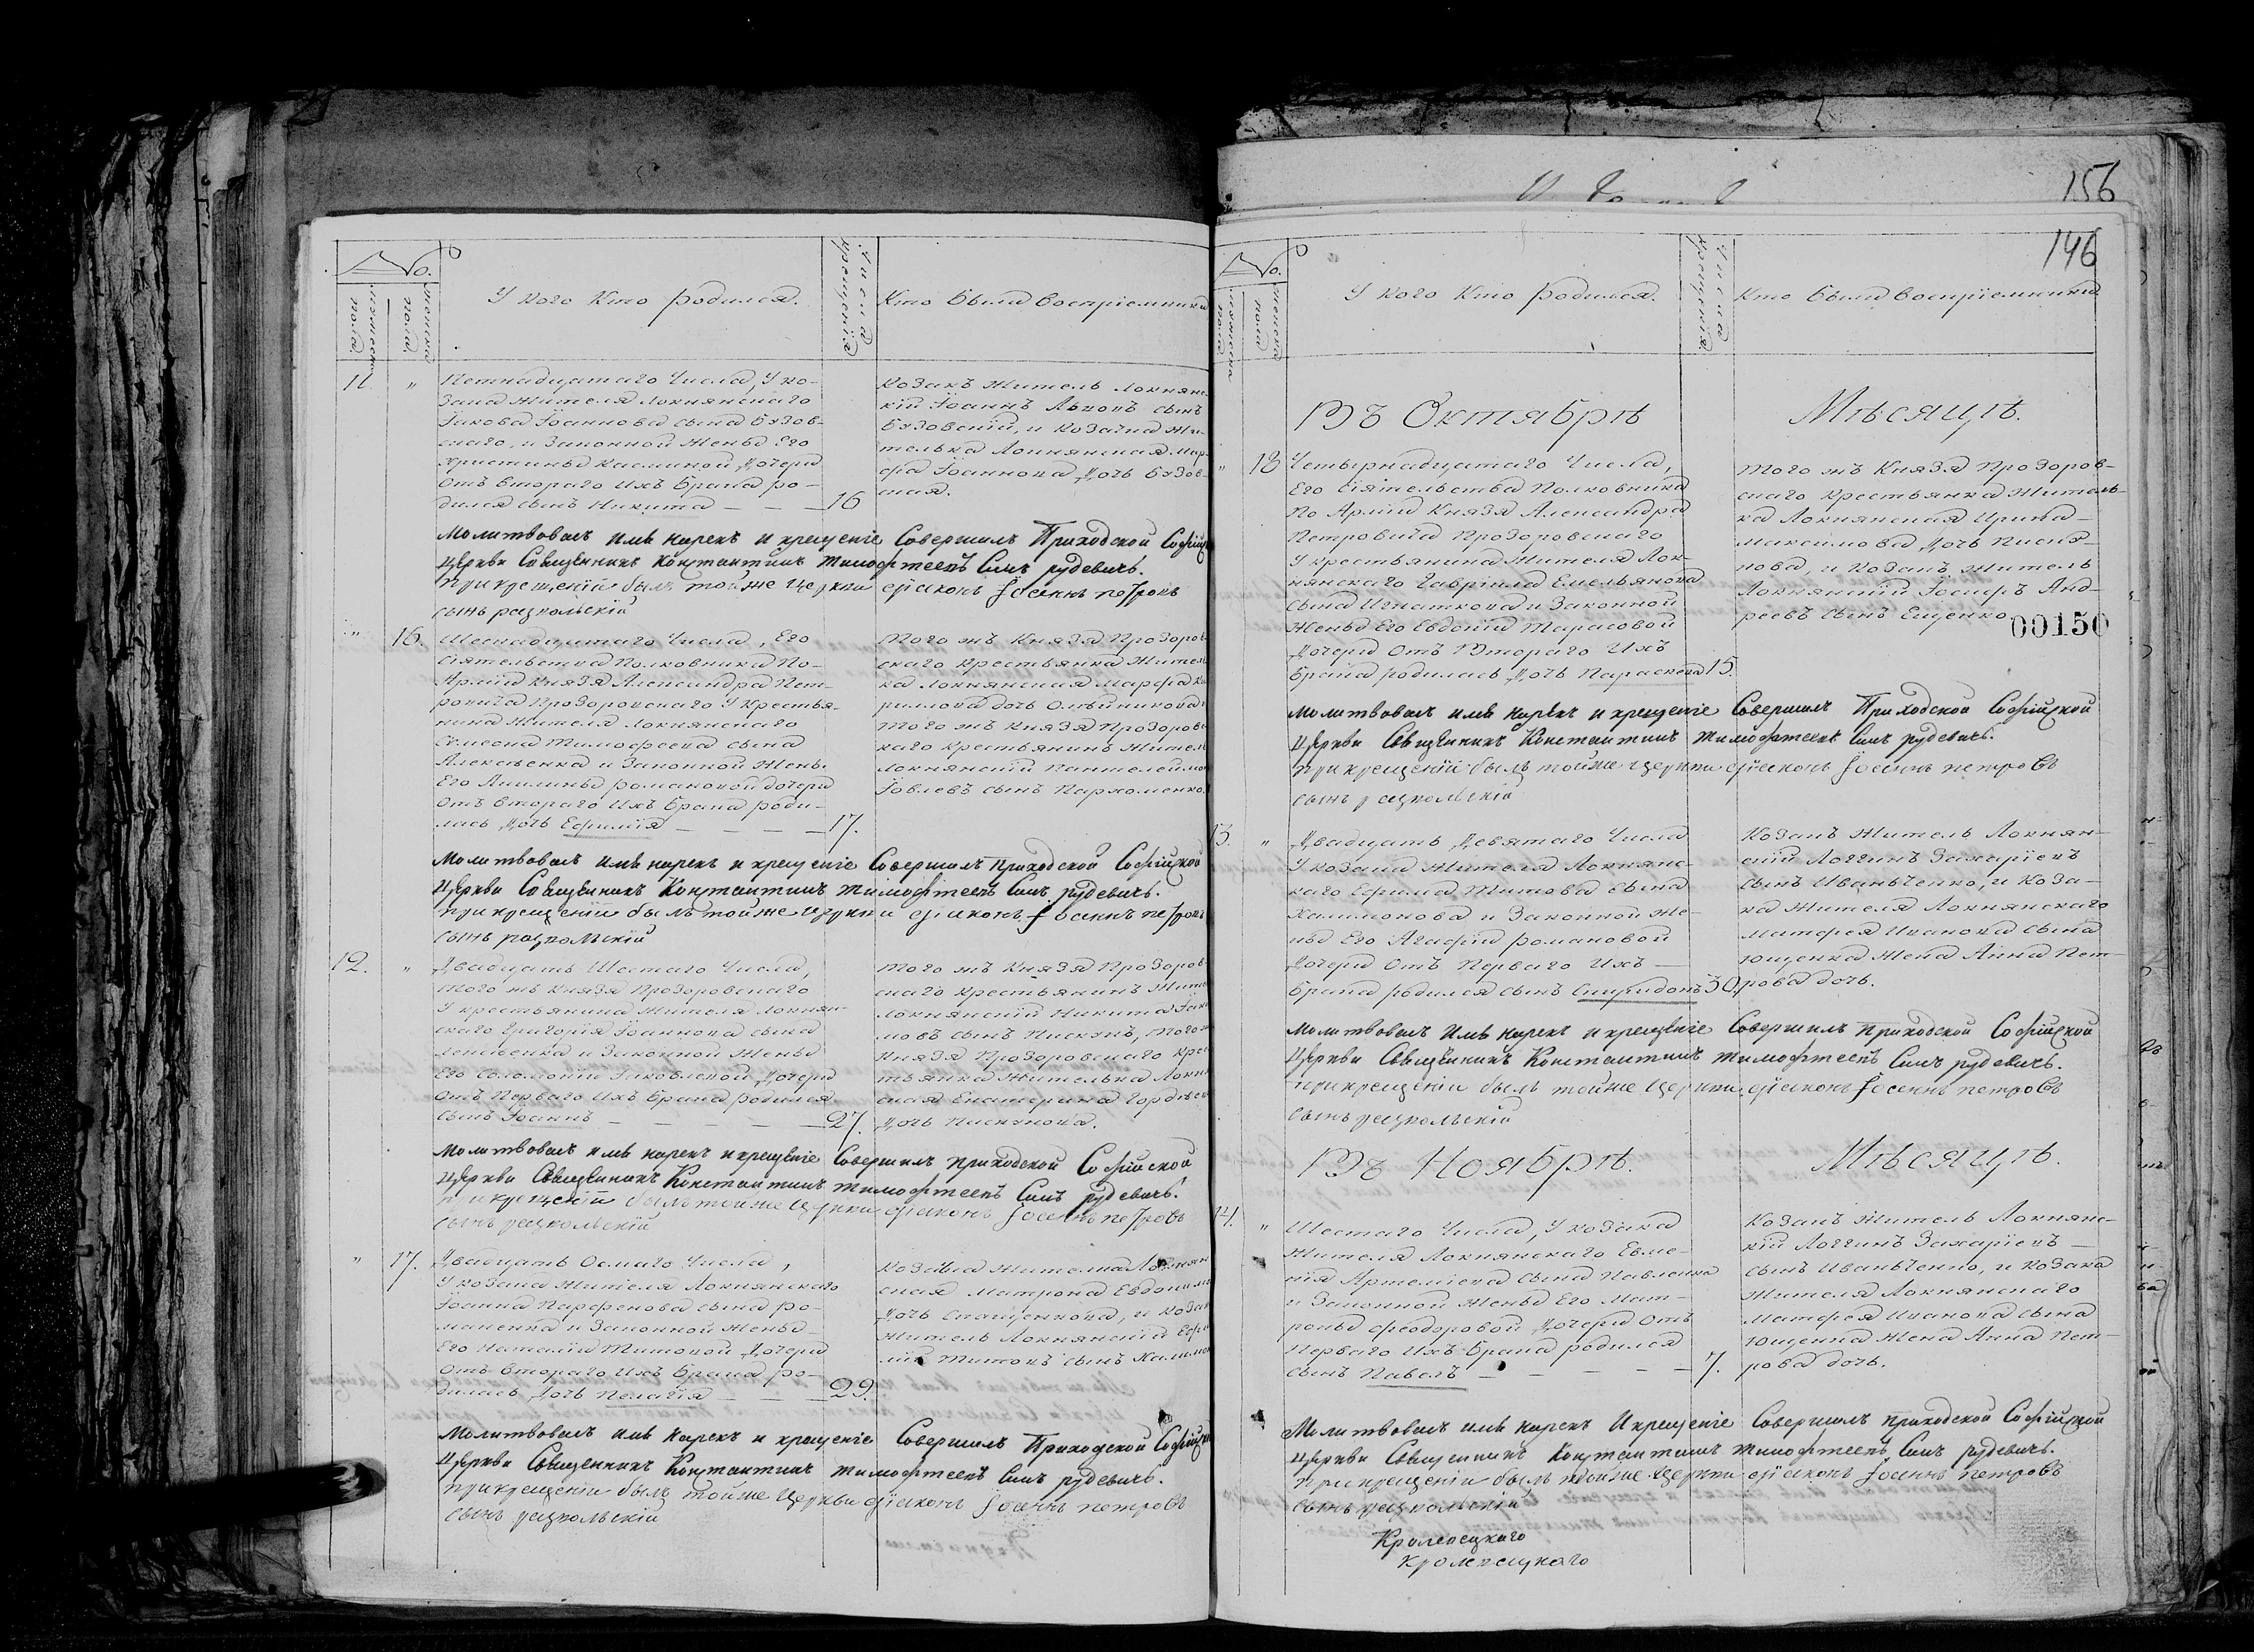 156
No.
мужеска пола.
женска пола.
У кого кто родился.
Числа крещенія
Кто были воспріемники
11. „
Петнадцатаго Числа, У ко-
зака Жителя Локнянскаго
Іакова Іоаннова сына Бузов-
скаго, и Законной Жены Его
Христины Дочери
Отъ втораго ихъ брака ро-
дился сынъ Никита — — — 16
Козакъ Житель Локнянс-
кій Іоаннъ сынъ
Бузовскій, и Козачка Жи-
телька Локнянская Мар-
фа Іоаннова Дочь Бузов-
ская.
Молитвовалъ имя нарекъ и крещеніе Совершилъ Приходской Софійской
Церкви Священникъ Константинъ Тимофѣевъ Сынъ рудевичъ.
При крещеніи былъ тойже Церкви діаконъ Іоаннъ петровъ
сынъ распольскій
„ 16.
Шеснадцатаго Числа, Его
Сіятельства Полковника По
Арміи Князя Александра Пет-
ровича Прозоровскаго У Крестья-
нина Жителя Локнянскаго
Симеона Тимофеева сына
Алексѣенка и Законной Жены
Его Акилины романовой дочери
Отъ втораго ихъ брака роди-
лась Дочь Ефимія — — — — 17.
Того жъ Князя Прозоров-
скаго Крестьянка Жител-
ка Локнянская Марфа Ки-
рилова дочь Олѣйникова
Того жъ Князя Прозоровс-
каго Крестьянинъ Житель
Локнянскій Пантелеймонъ
Іовлевъ сынъ Пархоменко.
Молитвовалъ имя нарекъ и крещеніе Совершилъ приходской Софійской
Церкви Священникъ Константинъ Тимофѣевъ Сынъ рудевичъ.
при крещеніи былъ тойже церкви діаконъ Іоаннъ петровъ
сынъ распольскій
12. „
Двадцать Шестаго Числа,
Того жъ Князя Прозоровскаго
У крестьянина Жителя Локнян-
скаго Григорія Іоаннова сына
и Законной Жены
Его Соломоніи Іаковлевой Дочери
Отъ Перваго Ихъ брака родился
сынъ Іоаннъ — — — — 27.
Того жъ Князя Прозоров-
скаго Крестьянинъ Житель
Локнянскій Никита Іаки-
мовъ сынъ Пискунъ, Тогожъ
Князя Прозоровскаго Крес-
тьянка Жителька Локнян-
ская Екатерина Гордѣева
Дочь Пискунова.
Молитвовалъ имя нарекъ и крещеніе Совершилъ приходской Софійской
Церкви Священникъ Константинъ Тимофѣевъ Сынъ рудевичъ.
при крещеніи былъ тойже Церкви діаконъ Іоаннъ петровъ
сынъ распольскій
„ 17.
Двадцать Осмаго Числа,
У козака Жителя Локнянскаго
Іоанна Парфенова сына Ро-
маненка и Законной Жены
Его Наталіи Титовой Дочери
Отъ втораго Ихъ брака ро-
дилась Дочь Пелагія — — 29.
Козачка Жителька Локнян-
ская Матрона Евдокимова
Дочь Спащенкова, и Козакъ
Житель Локнянскій
Титовъ сынъ
Молитвовалъ имя нарекъ и крещеніе Совершилъ Приходской Софійской
Церкви Священникъ Константинъ Тимофѣевъ Сынъ рудевичъ.
при крещеніи былъ тойже Церкви діаконъ Іоаннъ петровъ
сынъ распольскій
146
No.
мужеска пола
женска пола
У кого Кто родился.
Числа крещенія.
Кто были воспріемники
Въ Октябрѣ Мѣсяцѣ.
„ 18
Четырнадцатаго Числа,
Его Сіятельства Полковника
По Арміи Князя Александра
Петровича Прозоровскаго
У крестьянина Жителя Лок-
нянскаго Гавріила Емельянова
сына Игнаткова и Законной
Жены Его Евдокіи Тарасовой
Дочери Отъ Втораго Ихъ
брака родилась Дочь Параскева 15.
Того жъ Князя Прозоров-
скаго Крестьянка Житель-
ка Локнянская Ирина
Максимова Дочь Писку-
нова, и Козакъ Житель
Локнянскій Іосифъ Анд-
реевъ сынъ Ещенко
00150
Молитвовалъ имя нарекъ и крещеніе Совершилъ Приходской Софійской
Церкви Священникъ Константинъ Тимофѣевъ Сынъ рудевичъ.
при крещеніи былъ тойже церкви діаконъ Іоаннъ петровъ
сынъ распольскій
13. „
Двадцать Девятаго Числа
У козака Жителя Локнянс-
каго Ефима Титова сына
Халимонова и Законной Же-
ны Его Агафіи романовой
Дочери Отъ Перваго Ихъ
брака родился сынъ Спиридонъ 30.
Козакъ Житель Локнян-
скій Логгинъ Захаріевъ
сынъ Иванѣченко, и Коза-
ка Жителя Локнянскаго
Матфея Иванова сына
Ющенка Жена Анна Пет-
рова дочь.
Молитвовалъ имя нарекъ и крещеніе Совершилъ приходской Софійской
Церкви Священникъ Константинъ Тимофѣевъ Сынъ рудевичъ.
при крещеніи былъ тойже Церкви діаконъ Іоаннъ петровъ
сынъ распольскій
Въ Ноябрѣ. Мѣсяцѣ.
14. „
Шестаго Числа, У козака
Жителя Локнянскаго Евме-
нія Артеміева сына Павленка
и Законной Жены Его Мат-
роны Феодоровой Дочери Отъ
Перваго Ихъ брака родился
сынъ Павелъ — — — — 7.
Козакъ Житель Локнянс-
кій Логгинъ Захаріевъ
сынъ Иванѣченко, и Козака
Жителя Локнянскаго
Матфея Иванова сына
Ющенка Жена Анна Пет-
рова дочь.
Молитвовалъ имя нарекъ И крещеніе Совершилъ приходской Софійской
Церкви Священникъ Константинъ Тимофѣевъ Сынъ рудевичъ.
при крещеніи былъ тойже Церкви діаконъ Іоаннъ петровъ
сынъ распольскій
Кролевецкаго
Кролевецкаго